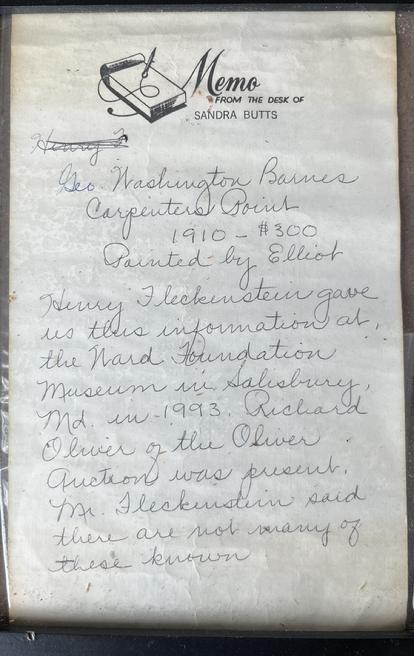 Memo
FROM THE DESK OF
SANDRA BUTTS
Henry F
Geo. Washington Barnes
Carpenters Point
1910 - $300
Painted by Elliot
Henry Fleckenstein gave
us this information at,
the Ward Foundation
Museum in Salisbury,
Md. in 1993. Richard
Oliver of the Oliver
Auction was present.
Mr. Fleckenstein said
there are not many of
these known